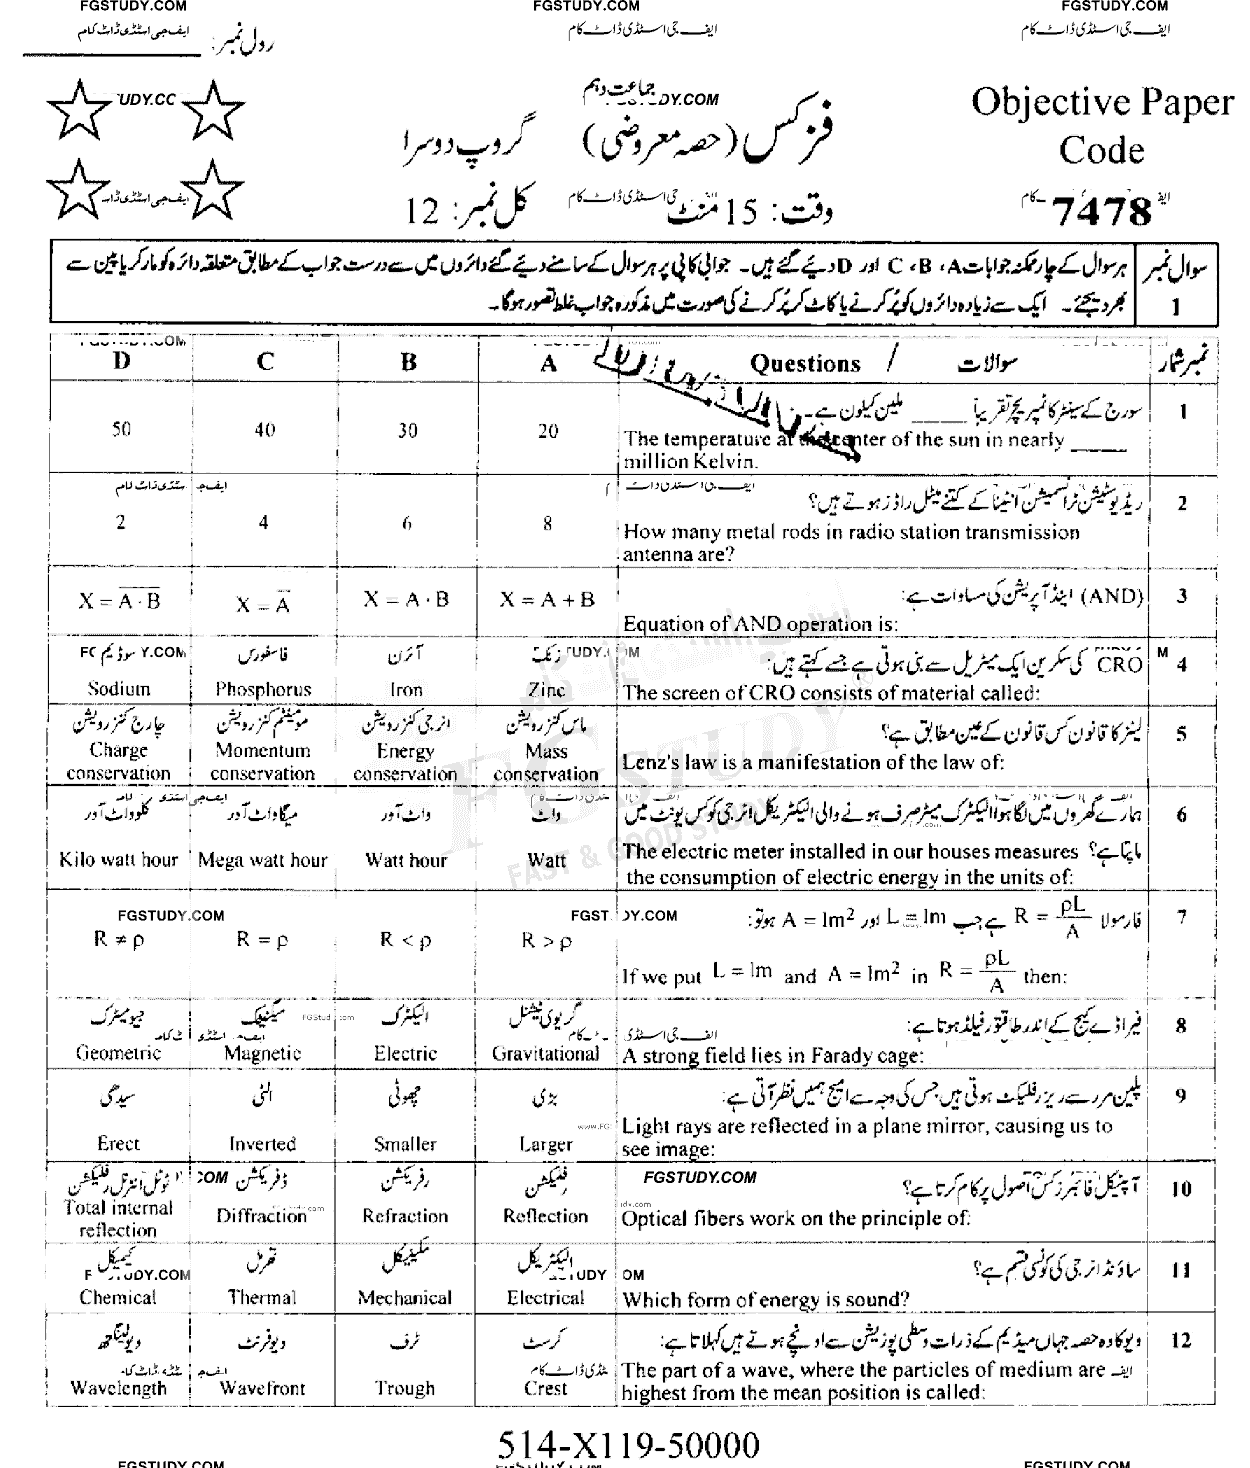 FGSTUDY.COM FGSTUDY.COM FGSTUDY.COM
ایف جی اسٹڈی ڈاٹ کام ایف جی اسٹڈی ڈاٹ کام ایف جی اسٹڈی ڈاٹ کام
رول نمبر:
جماعت دہم
UDY.CC DY.COM
Objective Paper
Code
7478
فزکس (حصہ معروضی) گروپ دوسرا
وقت: 15 منٹ کل نمبر: 12
سوال نمبر 1
ہر سوال کے چار ممکنہ جوابات A، B، C اور D دیئے گئے ہیں۔ جوابی کاپی پر ہر سوال کے سامنے دیئے گئے دائروں میں سے درست جواب کے مطابق متعلقہ دائرہ کو مارکر یا پین سے
بھر دیجئے۔ ایک سے زیادہ دائروں کو پُر کرنے یا کاٹ کر پُر کرنے کی صورت میں مذکورہ جواب غلط تصور ہوگا۔
D C B A Questions / سوالات نمبر شمار
سورج کے سینٹر کا ٹمپریچر تقریباً _____ ملین کیلون ہے۔ 1
50 40 30 20 The temperature at the center of the sun in nearly _____
million Kelvin.
ریڈیو سٹیشن ٹرانسمیشن انٹینا کے کتنے میٹل راڈز ہوتے ہیں؟ 2
2 4 6 8 How many metal rods in radio station transmission
antenna are?
(AND) اینڈ آپریشن کی مساوات ہے: 3
X = \overline{A · B} X = \overline{A} X = A · B X = A + B
Equation of AND operation is:
CRO کی سکرین ایک میٹریل سے بنی ہوتی ہے جسے کہتے ہیں: 4
سوڈیم فاسفورس آئرن زنک
Sodium Phosphorus Iron Zinc The screen of CRO consists of material called:
لینز کا قانون کس قانون کے عین مطابق ہے؟ 5
چارج کنزرویشن مومینٹم کنزرویشن انرجی کنزرویشن ماس کنزرویشن
Charge conservation Momentum conservation Energy conservation Mass conservation
Lenz's law is a manifestation of the law of:
ہمارے گھروں میں لگا ہوا الیکٹرک میٹر صرف ہونے والی الیکٹریکل انرجی کو کس یونٹ میں 6
ماپتا ہے؟
کلو واٹ آور میگا واٹ آور واٹ آور واٹ
Kilo watt hour Mega watt hour Watt hour Watt
The electric meter installed in our houses measures
the consumption of electric energy in the units of:
FGSTUDY.COM
فارمولا R = ρL/A ہے جب L = 1m اور A = 1m² ہو تو: 7
R ≠ ρ R = ρ R < ρ R > ρ
If we put L = 1m and A = 1m² in R = ρL/A then:
فیراڈے کیج کے اندر طاقتور فیلڈ ہوتا ہے: 8
جیومیٹرک میگنیٹک الیکٹرک گریوی ٹیشنل
Geometric Magnetic Electric Gravitational A strong field lies in Farady cage:
پلین مرر سے ریز رفلیکٹ ہوتی ہیں جس کی وجہ سے امیج ہمیں نظر آتی ہے: 9
سیدھی الٹی چھوٹی بڑی
Erect Inverted Smaller Larger
Light rays are reflected in a plane mirror, causing us to
see image:
FGSTUDY.COM
آپٹیکل فائبرز کس اصول پر کام کرتا ہے؟ 10
ٹوٹل انٹرنل رفلیکشن ڈفریکشن رفریکشن رفلیکشن
Total internal reflection Diffraction Refraction Reflection
Optical fibers work on the principle of:
ساؤنڈ انرجی کی کونسی قسم ہے؟ 11
کیمیکل تھرمل مکینیکل الیکٹریکل
Chemical Thermal Mechanical Electrical Which form of energy is sound?
ویو کا وہ حصہ جہاں میڈیم کے ذرات وسطی پوزیشن سے اونچے ہوتے ہیں کہلاتا ہے: 12
ویولینگتھ ویوفرنٹ ٹرف کرسٹ
Wavelength Wavefront Trough Crest
The part of a wave, where the particles of medium are
highest from the mean position is called:
FGSTUDY
FAST & GOOD STUDY
514-X119-50000
FGSTUDY.COM FGSTUDY.COM FGSTUDY.COM